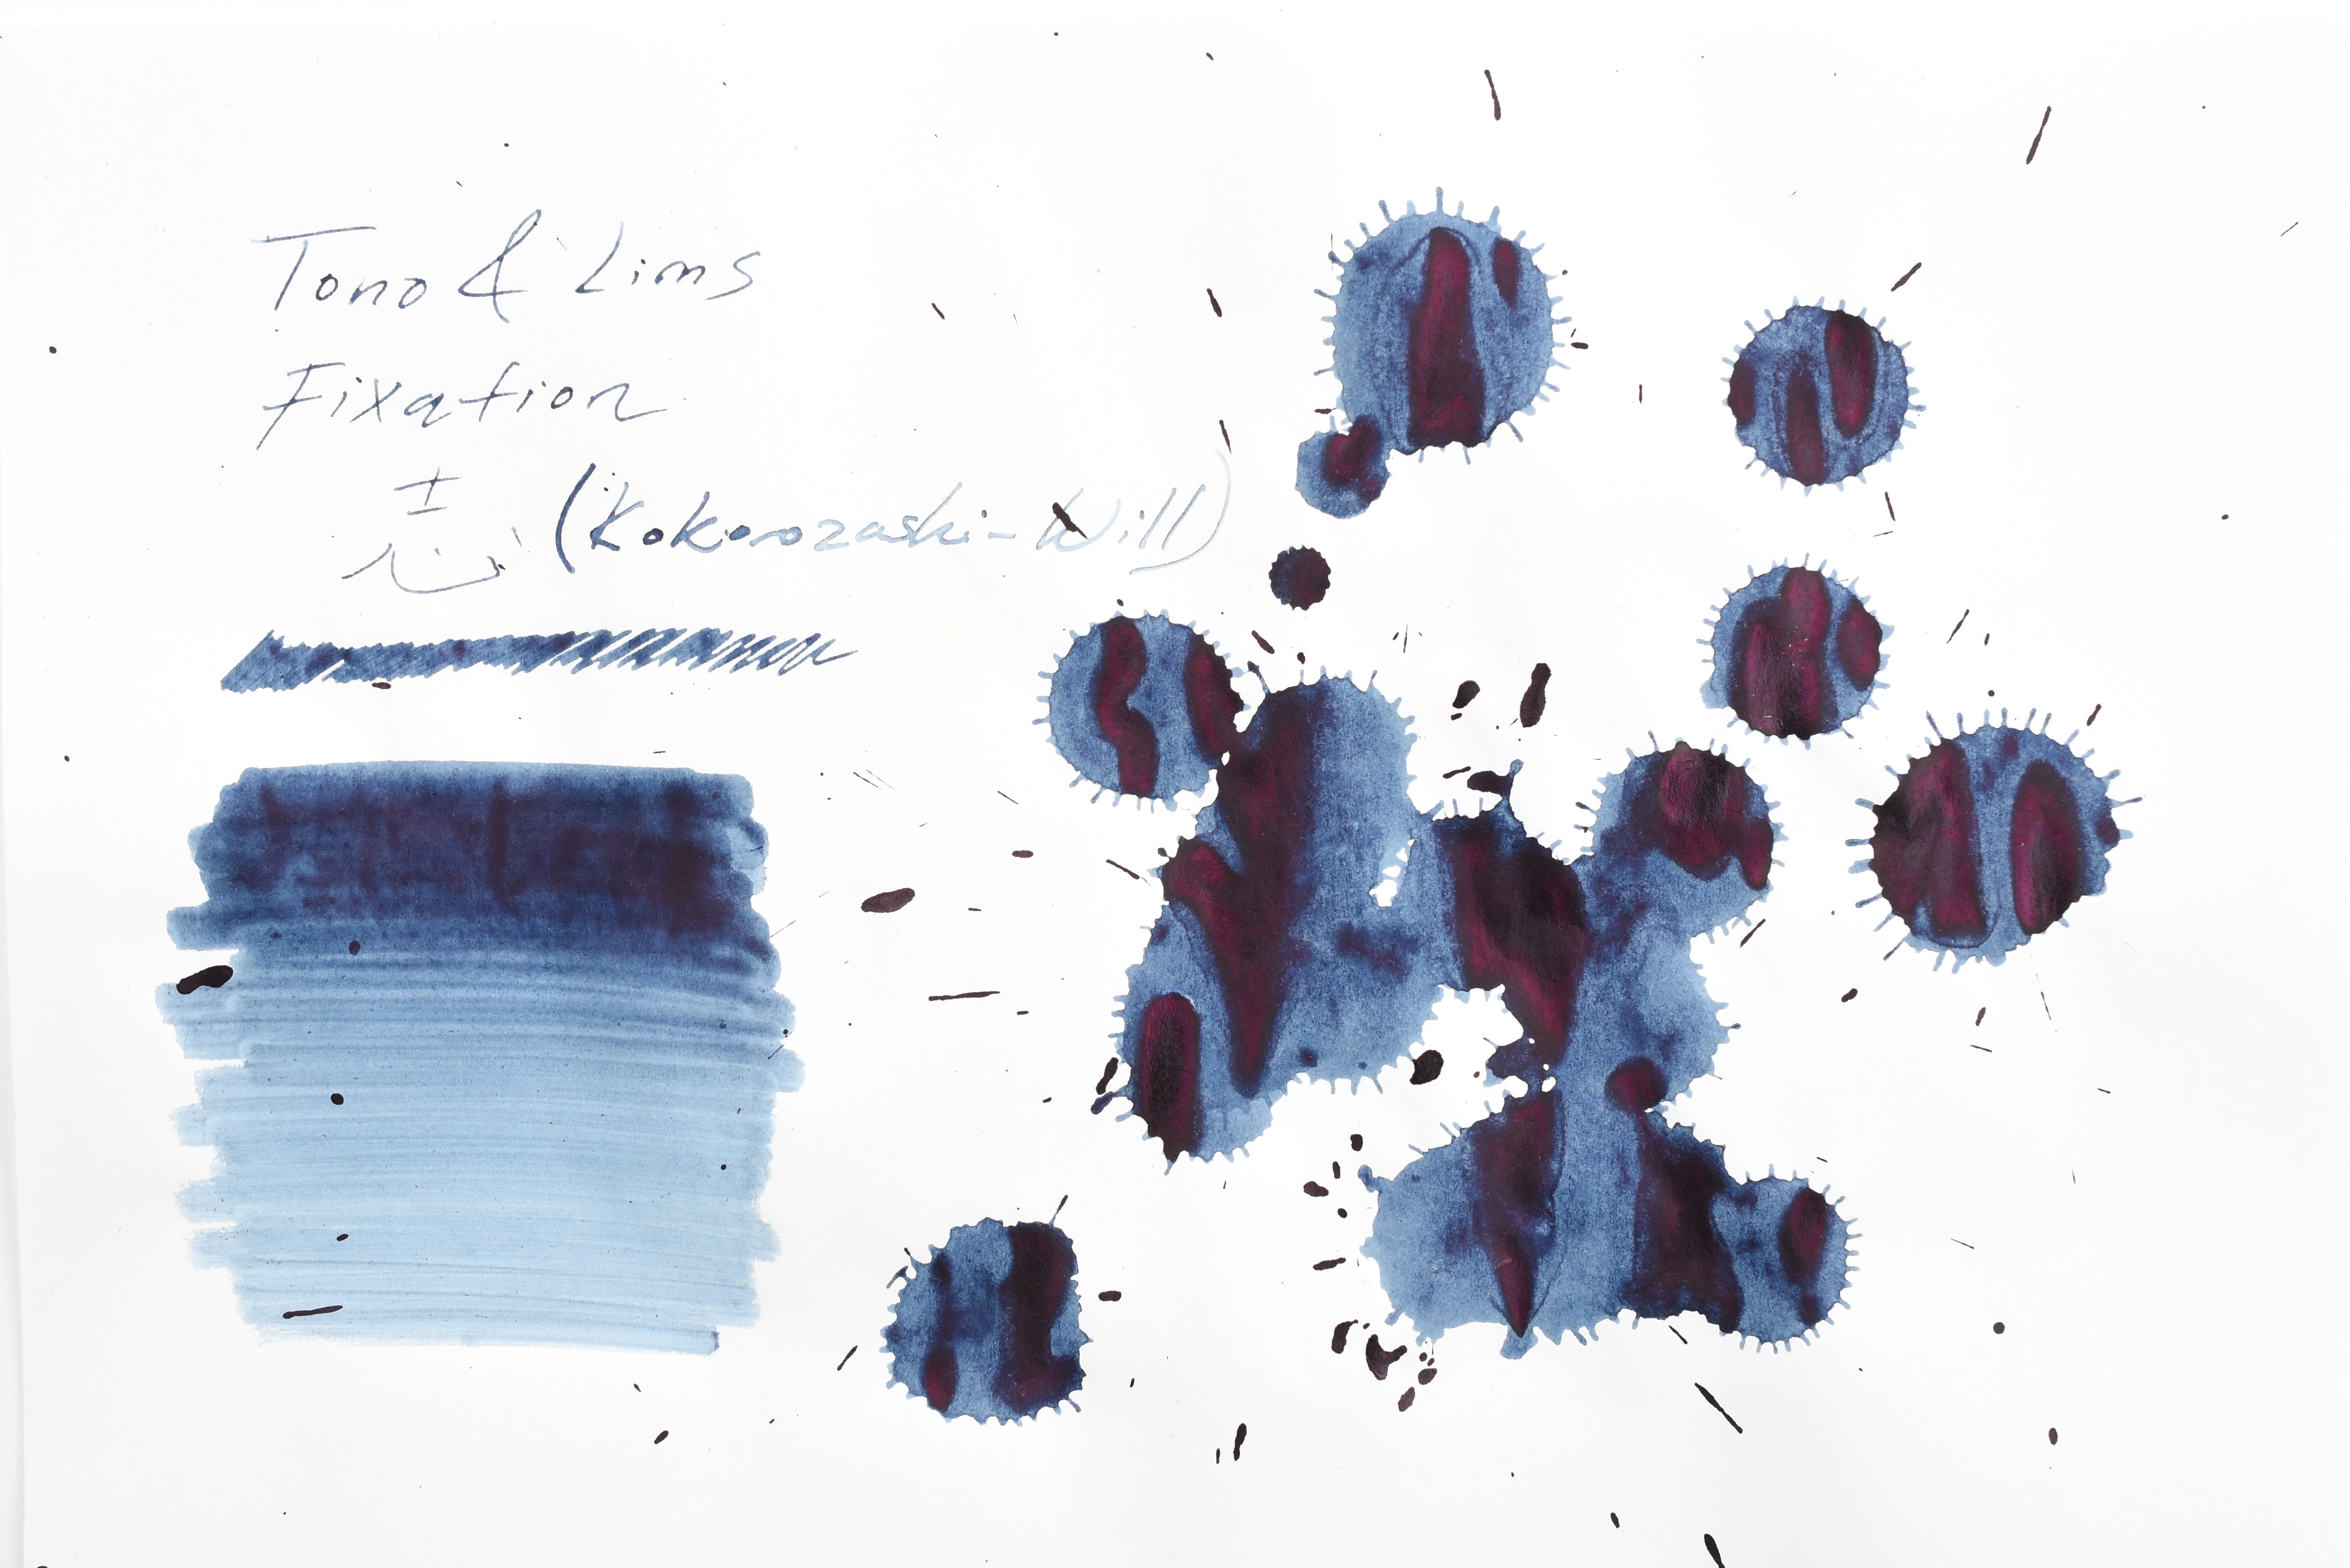 Tono & Lims
Fixation
志 (Kokorozashi-Will)